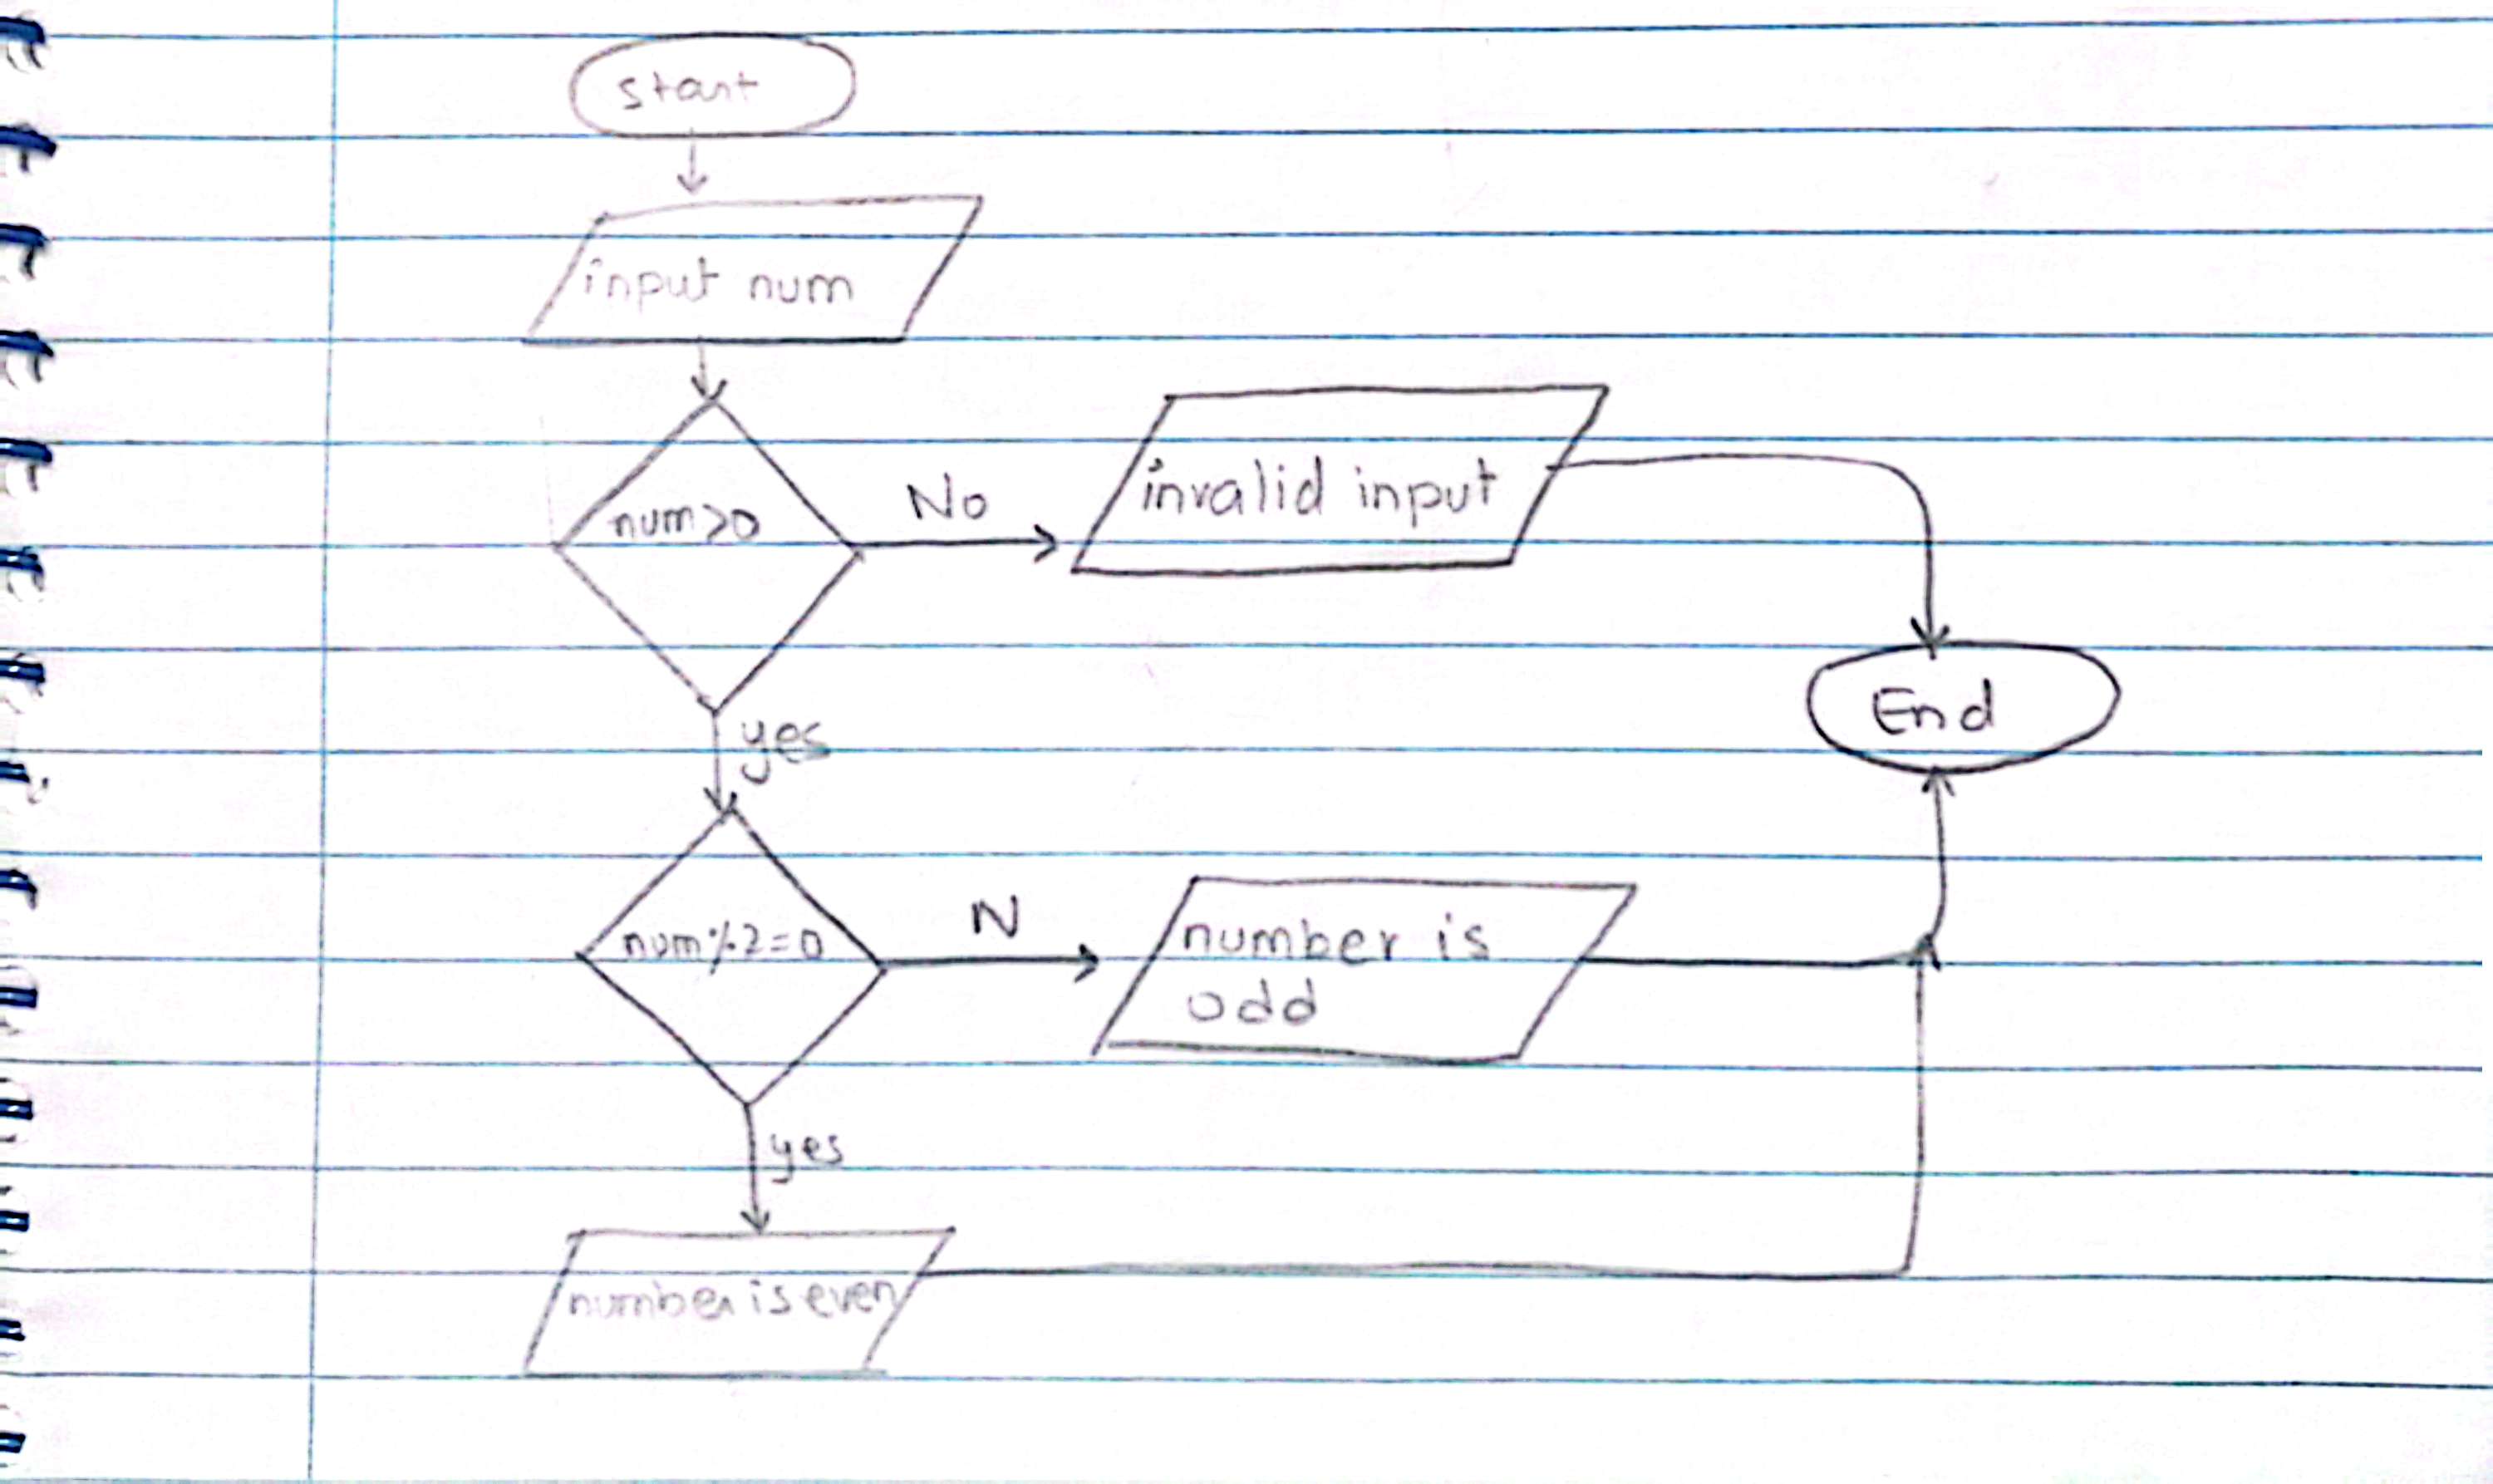 start
input num
num>0
No
invalid input
yes
End
num%2=0
N
number is
odd
yes
number is even